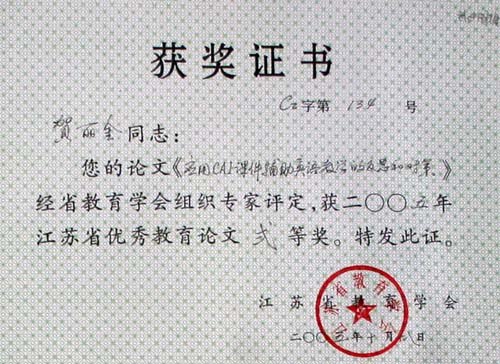 获奖证书
Cz字第 134 号
贺丽金同志：
您的论文《应用CAI课件辅助英语教学的反思和对策》
经省教育学会组织专家评定，获二〇〇五年
江苏省优秀教育论文 贰 等奖。特发此证。
江苏省教育学会
二〇〇五年十月八日